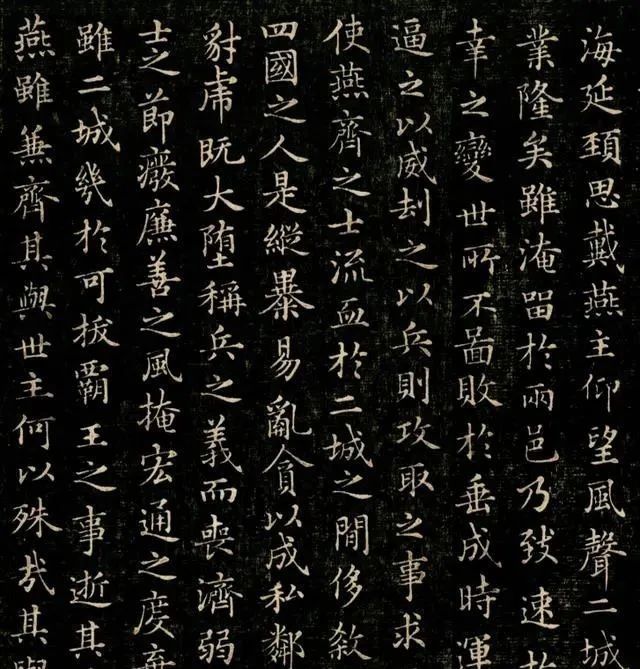 海延頚思戴燕主仰望風聲二城
業隆矣雖淹留於兩邑乃致速
幸之變世所不啚敗於垂成時運
逼之以威劫之以兵則攻取之事求
使燕齊之士流血於二城之閒侈殺
四國之人是縱暴易亂貪以成私鄰
豺虎既大墮稱兵之義而喪濟弱
士之節癈廉善之風掩宏通之度
雖二城幾於可拔霸王之事逝其
燕雖兼齊其與世主何以殊哉其與